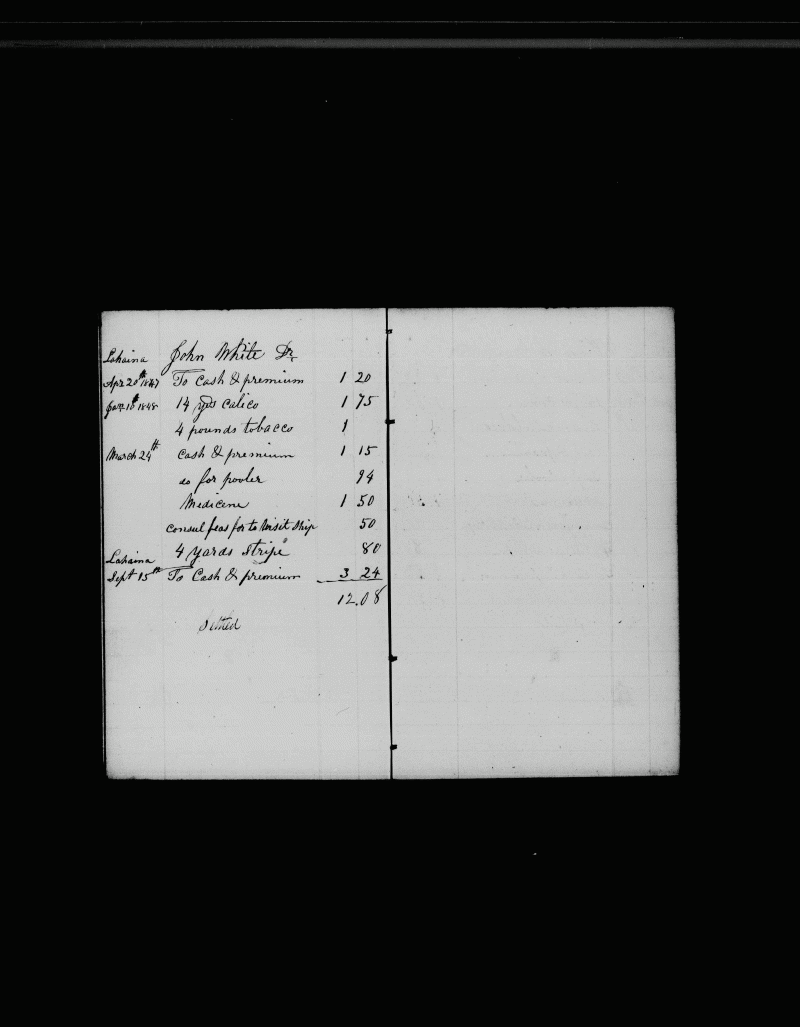 Lahaina John White Dr
Apr 20th 1847 To Cash & premium 1 20
Jan 10th 1848 14 yds calico 1 75
4 pounds tobacco 1
March 24th Cash & premium 1 15
do for 94
Medicene 1 50
Consul feas for to visit ship 50
4 yards stripe 80
Lahaina
Sept 15th To Cash & premium 3 24
12.08